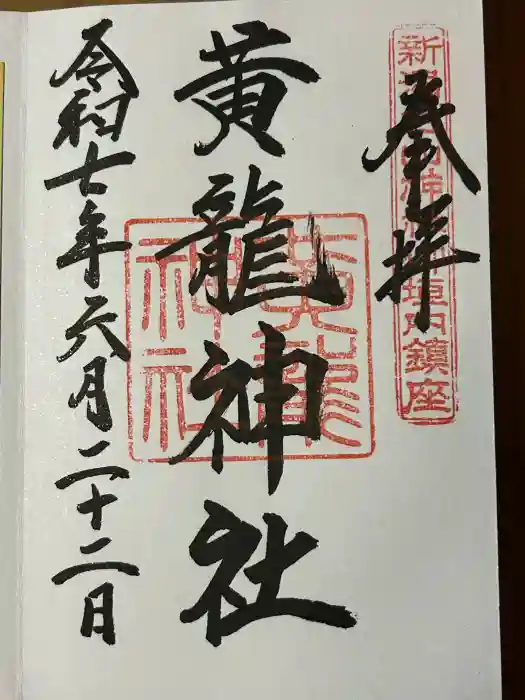 奉拝
新 田神社 境内鎮座
黄龍神社
黄龍
神社
令和七年六月二十二日